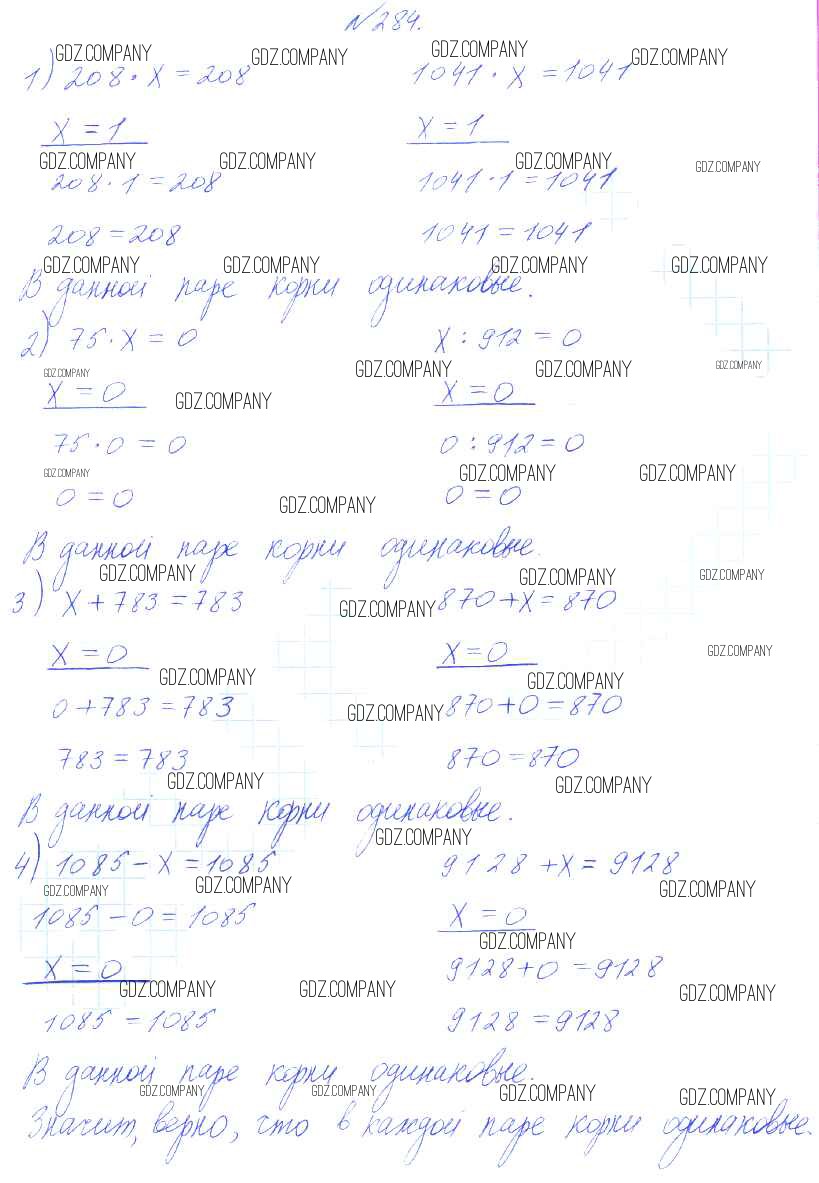 №284.
GDZ.COMPANY GDZ.COMPANY GDZ.COMPANY GDZ.COMPANY
1) 208 · x = 208 1041 · x = 1041
x = 1 x = 1
GDZ.COMPANY GDZ.COMPANY GDZ.COMPANY GDZ.COMPANY
208 · 1 = 208 1041 · 1 = 1041
208 = 208 1041 = 1041
GDZ.COMPANY GDZ.COMPANY GDZ.COMPANY GDZ.COMPANY
В данной паре корни одинаковые.
2) 75 · x = 0 x : 912 = 0
GDZ.COMPANY GDZ.COMPANY GDZ.COMPANY GDZ.COMPANY
x = 0 x = 0
GDZ.COMPANY
75 · 0 = 0 0 : 912 = 0
GDZ.COMPANY GDZ.COMPANY GDZ.COMPANY
0 = 0 0 = 0
GDZ.COMPANY
В данной паре корни одинаковые.
GDZ.COMPANY GDZ.COMPANY GDZ.COMPANY
3) x + 783 = 783 870 + x = 870
GDZ.COMPANY
x = 0 x = 0
GDZ.COMPANY
GDZ.COMPANY GDZ.COMPANY
0 + 783 = 783 870 + 0 = 870
GDZ.COMPANY
783 = 783 870 = 870
GDZ.COMPANY GDZ.COMPANY
В данной паре корни одинаковые.
GDZ.COMPANY
4) 1085 – x = 1085 9128 + x = 9128
GDZ.COMPANY GDZ.COMPANY GDZ.COMPANY
1085 – 0 = 1085 x = 0
GDZ.COMPANY
x = 0 9128 + 0 = 9128
GDZ.COMPANY GDZ.COMPANY GDZ.COMPANY
1085 = 1085 9128 = 9128
В данной паре корни одинаковые.
GDZ.COMPANY GDZ.COMPANY GDZ.COMPANY GDZ.COMPANY
Значит, верно, что в каждой паре корни одинаковые.